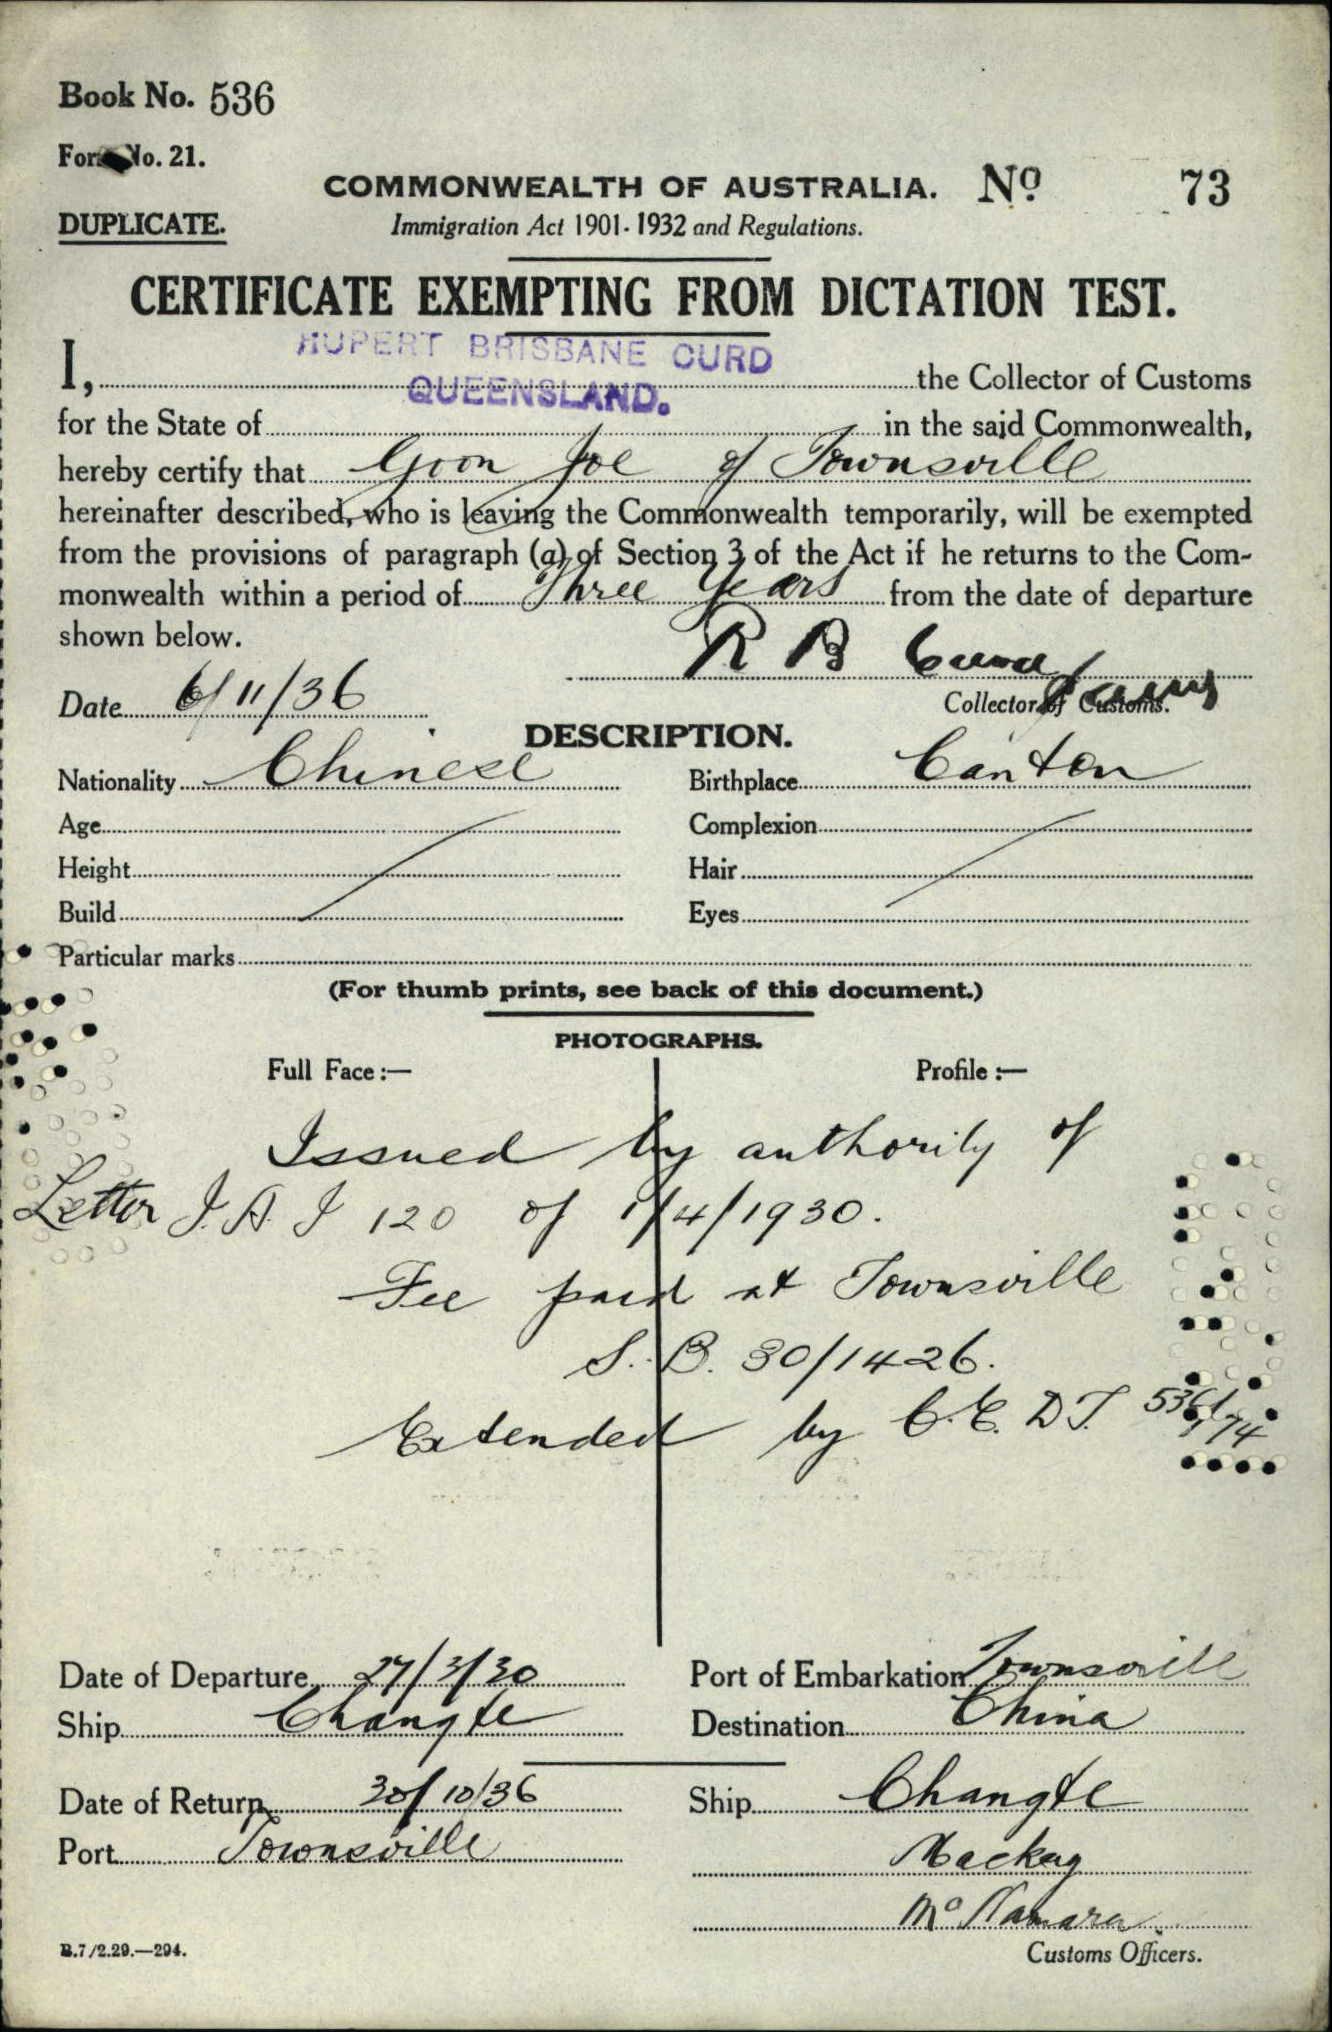 Book No. 536
Form No. 21.
COMMONWEALTH OF AUSTRALIA. No 73
DUPLICATE.
Immigration Act 1901-1932 and Regulations.
CERTIFICATE EXEMPTING FROM DICTATION TEST.
RUPERT BRISBANE CURD
I, the Collector of Customs
QUEENSLAND.
for the State of in the said Commonwealth,
hereby certify that Goon Joe of Townsville
hereinafter described, who is leaving the Commonwealth temporarily, will be exempted
from the provisions of paragraph (a) of Section 3 of the Act if he returns to the Com-
monwealth within a period of Three Years from the date of departure
shown below.
R B Curd
Date 6/11/36 Collector of Customs.
DESCRIPTION.
Nationality Chinese Birthplace Canton
Age Complexion
Height Hair
Build Eyes
Particular marks
(For thumb prints, see back of this document.)
PHOTOGRAPHS.
Full Face :— Profile :—
Issued by authority of
Letter J. A. J 120 of 1/4/1930.
Fee paid at Townsville
S. B. 30/1426.
Extended by C.E. D T. 536/74
Date of Departure 27/3/30 Port of Embarkation Townsville
Ship Changte Destination China
Date of Return 30/10/36 Ship Changte
Port Townsville Mackay
McNamara
B.7/2.29.—294. Customs Officers.